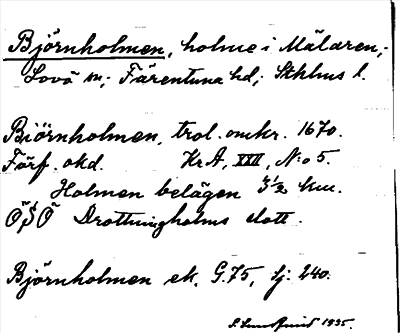 Björnholmen, holme i Mälaren,
Lovö sn; Färentuna hd; Sthlms l.
Biörnholmen, trol. omkr. 1670.
Förf. okd. Kr A, XXII, N:o 5.
Holmen belägen 3 1/2 km.
OSO Drottningholms slott.
Björnholmen ek. G. 75, sj: 240.
1935.